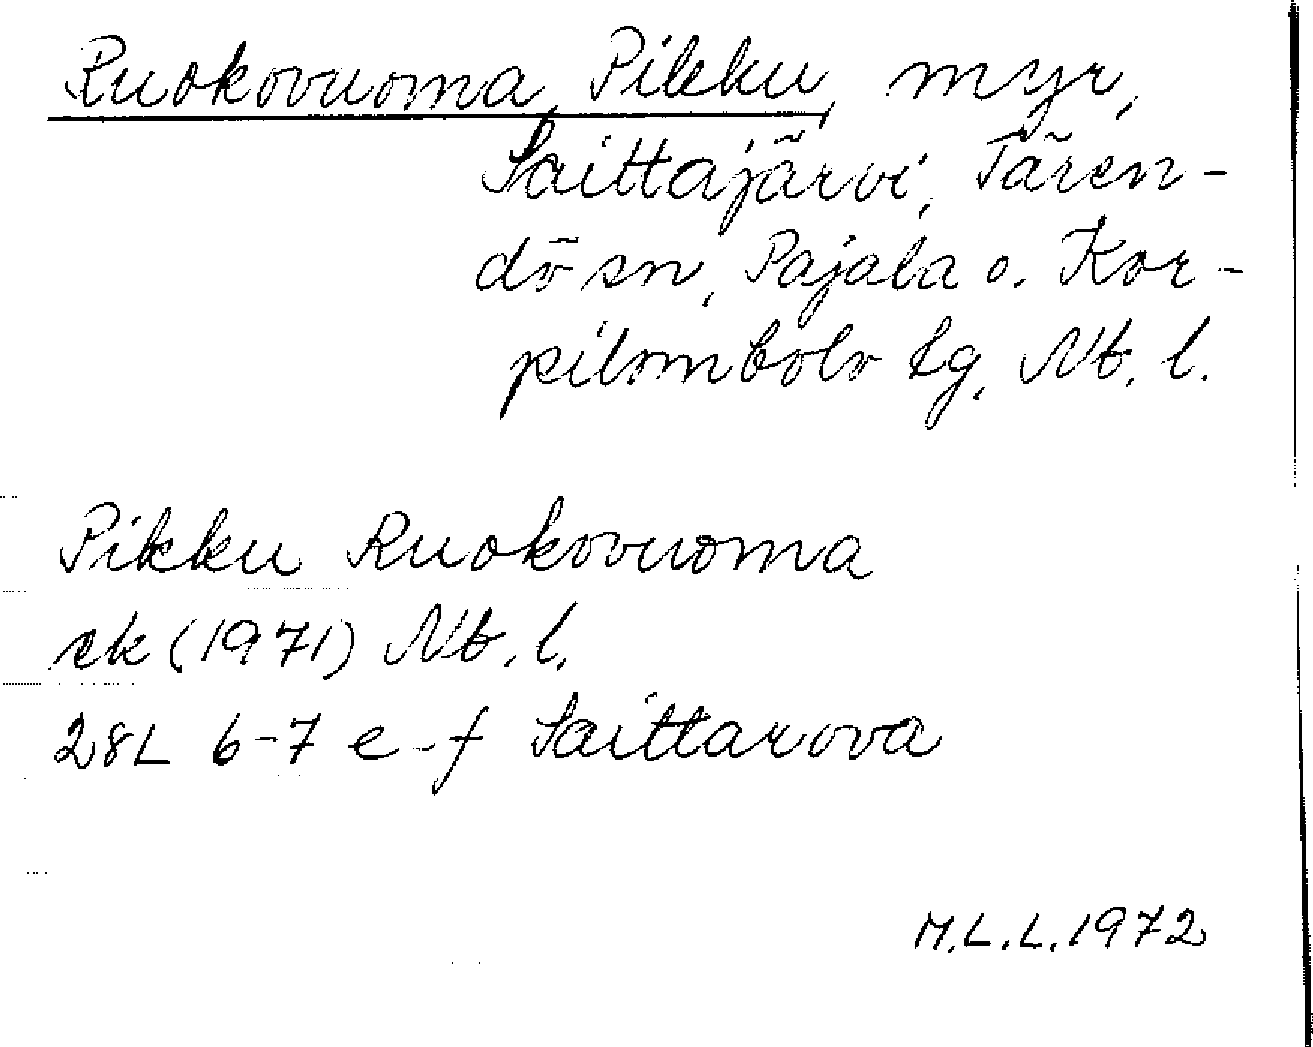 Ruokovuoma, Pikku, myr,
Saittajärvi, Tären-
dö sn, Pajala o. Kor-
pilombolo tg, Nb. l.
Pikku Ruokovuoma
ek (1971) Nb. l.
28L 6-7 e-f Saittarova
M.L.L. 1972